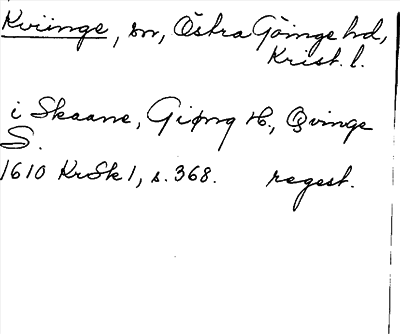 Kviinge, sn, Östra Göinge hd,
Krist. l.
i Skaane, Giøng H., Qvinge
S.
1610 KrSk 1, s. 368. regest.